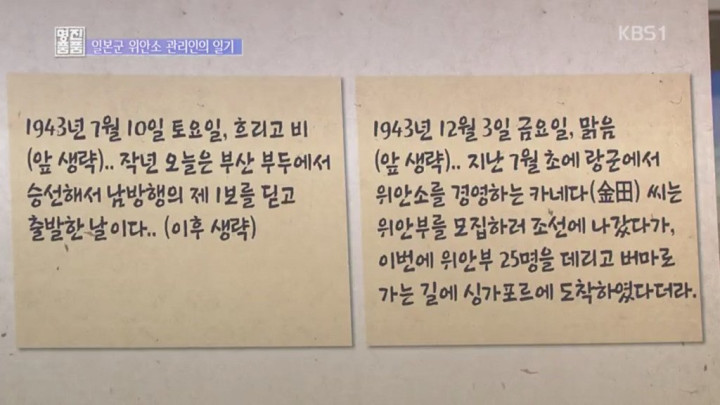 명진
품품
일본군 위안소 관리인의 일기
KBS1
1943년 7월 10일 토요일, 흐리고 비
(앞 생략).. 작년 오늘은 부산 부두에서
승선해서 남방행의 제 1보를 딛고
출발한 날이다.. (이후 생략)
1943년 12월 3일 금요일, 맑음
(앞 생략).. 지난 7월 초에 랑군에서
위안소를 경영하는 카네다(金田) 씨는
위안부를 모집하러 조선에 나갔다가,
이번에 위안부 25명을 데리고 버마로
가는 길에 싱가포르에 도착하였다더라.